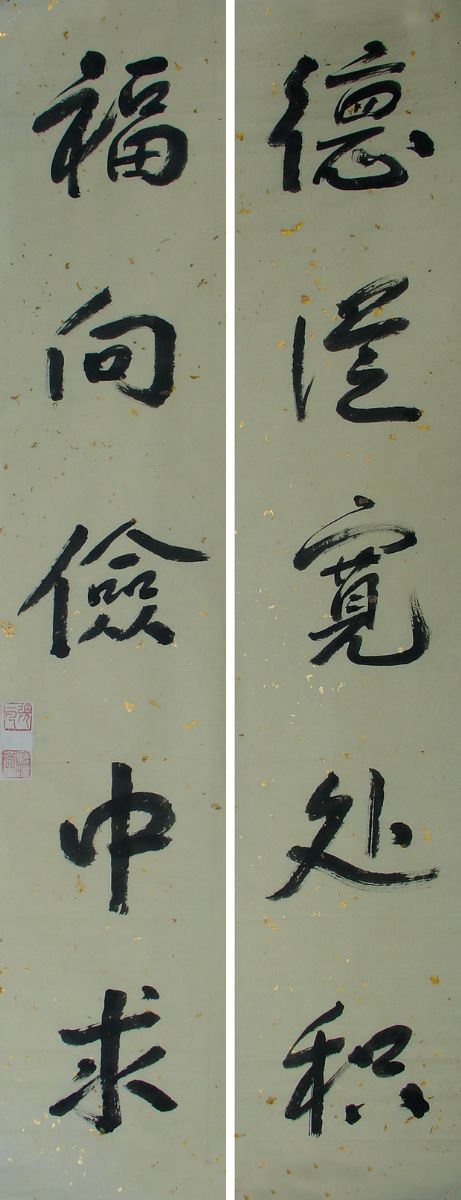 德從寬处积
福向儉中求